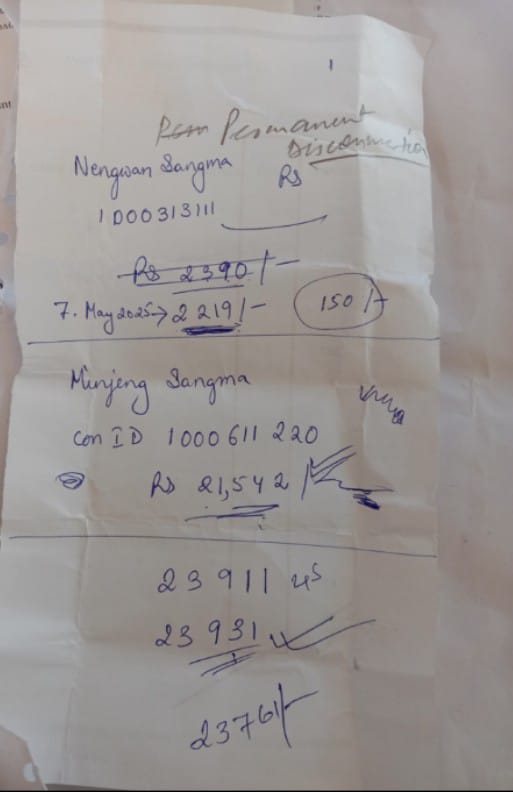 Permanent
Disconnection
Nengwan Sangma Rs
1D00313111
Rs 2390/-
7. May 2025→ 2219/- 150/-
Minjeng Sangma
Con ID 1000611220
Rs 21,542/-
23911
23931
23761/-